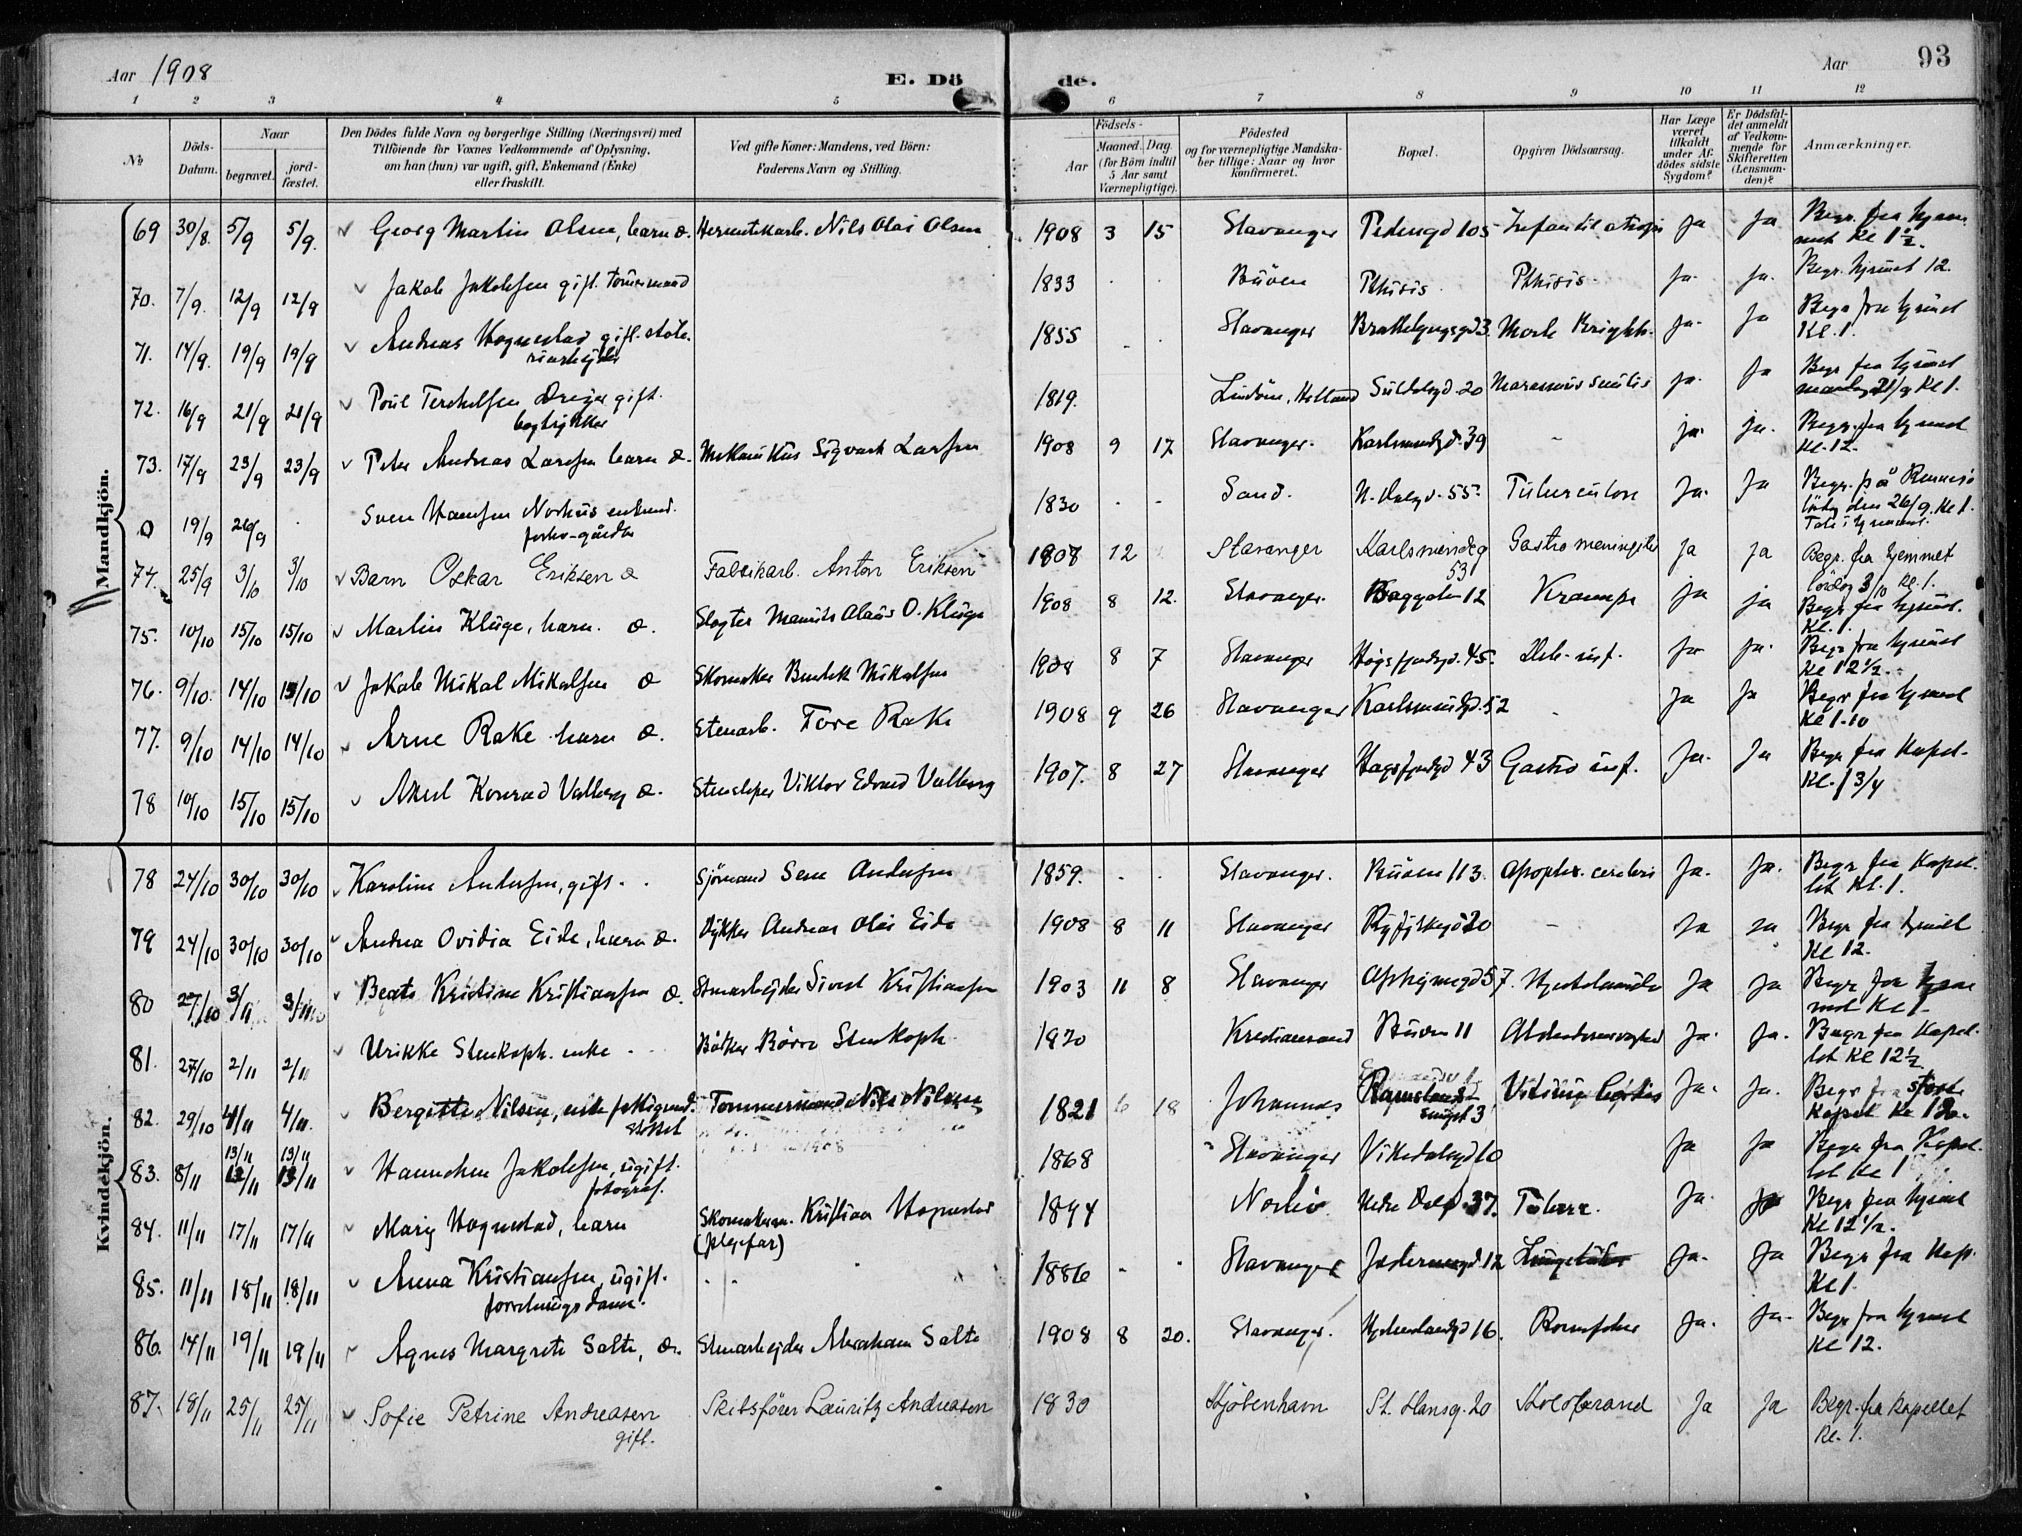 Aar 1908
E. Dö
de.
Aar
93
1 2 3 4 5 6 7 8 9 10 11 12
No
Döds-
Datum.
Naar
begravet.
jord-
fæstet.
Den Dödes fulde Navn og borgerlige Stilling (Næringsvei) med
Tilföiende for Voxnes Vedkommende af Oplysning,
om han (hun) var ugift, gift, Enkemand (Enke)
eller fraskilt.
Ved gifte Koner: Mandens, ved Börn:
Faderens Navn og Stilling.
Födsels-
Aar
Maaned. Dag.
(for Börn indtil
5 Aar samt
Værnepligtige).
Födested
og for værnepligtige Mandska-
ber tillige: Naar og hvor
konfirmeret.
Bopæl.
Opgiven Dödsaarsag.
Har Læge
været
tilkaldt
under Af-
dödes sidste
Sygdom?
Er Dödsfal-
det anmeldt
af Vedkom-
mende for
Skifteretten
(Lensman-
den)?
Anmærkninger.
Mandkjön.
69 30/8. 5/9 5/9. Georg Martin Olsen, barn æ. Hermetikarb. Nils Olai Olsen 1908 3 15 Stavanger Pedersgd 105 Infantil atrofi Ja Ja Begr. fra hjem-
met Kl 1½.
70. 7/9. 12/9 12/9 Jakob Jakobsen gift. Tömmermand 1833 Buöen Phtisis Phtisis. ja. ja. Begr. hjemmet 12.
71. 14/9. 19/9 19/9 Andreas Hognestad gift. 1855 Stavanger 3. Morb. Brightii. ja. ja Begr fra hjemmet
Kl. 1.
72. 16/9 21/9 21/9 Poul Terchelsen gift.
bogtrykker 1819. Holland Suldalsgd. 20 Marasmus senilis ja. ja Begr fra hjemmet
mandag 21/9 Kl 1.
73. 17/9 23/9 23/9 Peter Andreas Larsen barn æ. Mekanikus Sigvart Larsen 1908 9 17 Stavanger. Karlsmindegd. 39 - ja. ja. Begr. fra hjemmet
Kl. 12.
0 19/9 26/9 Sven Hansen enkemd. 1830 Sand. N. Dalgd. 55. Tuberculose Ja. Ja Begr. på Rennesö
lördag den 26/9. Kl 1.
Tale i hjemmet.
74. 25/9 3/10 3/10 Barn Oskar Eriksen æ Fabrikarb. Anton Eriksen 1908 12 Stavanger Karlsmindeg
53 Gastro meningites ja ja Begr. fra hjemmet
lördag 3/10 Kl. 1.
75. 10/10 15/10 15/10 Martin Kluge, barn. æ. Slagter Mauritz Olaus O. Kluge 1908 8 12. Stavanger. Baggaten 12 Krampe ja ja Begr. fra hjemmet.
Kl. 1.
76. 9/10. 14/10 13/10 Jakob Mikal Mikalsen æ Skomaker Mikalsen 1908 8 7 Stavanger Högsfjordgd. 45. ja. ja. Begr fra hjemmet
Kl 12½.
77. 9/10 14/10 14/10 Arne Rake barn æ. Stenarb. Tore Rake 1908 9 26 Stavanger Karlsmindegd. 52 . Ja Ja Begr fra hjemmet
Kl 1.10
78 10/10 15/10 15/10 Aksel Konrad Valberg æ. Viktor Edvard Valberg 1907. 8 27 Stavanger Högsfjordgd 43 Gastro inf. Ja. Ja Begr fra Kapel.
Kl. 1 3/4
Kvindekjön.
78 24/10 30/10 30/10 Karoline Andersen, gift. Sjömand Andersen 1859. Stavanger. Buöen 113. Apoplex. cerebri Ja. Ja. Begr fra Kapel-
let Kl. 1.
79 24/10 30/10 30/10 Andrea Ovidia Eide, barn æ. Andreas Olai Eide 1908 8 11 Stavanger Ryfylkegd 20 - Ja Ja Begr fra hjemmet
Kl 12.
80 27/10 3/11 3/11 Beate Kristine Kristiansen æ. Stenarbejder Sivert Kristiansen 1903 11 8 Stavanger 57. Ja Ja Begr fra hjem
met Kl 1.
81. 27/10 2/11 2/11 Ulrikke Stenkoph. enke Bödker Börre Stenkoph. 1820 Kristiansand Buöen 11 Alderdomssvaghed Ja. Ja. Begr fra Kapel-
let Kl 12½
82. 29/10 4/11 4/11. Bergitte Nilsen, enke
Tömmermand Nils Nilsen 1821 6 18 Johannes 3 Ja. Ja. Begr fra store
Kapel Kl 12.
83. 8/11 13/11 13/11
13/11 13/11 Hannchen Jakobsen, ugift.
fotograf. 1868 Stavanger Vikedalsgd 10 Ja Ja Begr fra Kapel-
let Kl 1
84. 11/11 17/11 17/11 Mary Hognestad, barn Kristian Hognestad
(plejefar) 1894 Nedre Dalgd. 37. Ja. Ja Begr fra hjemmet
Kl 12½.
85. 11/11 18/11 18/11 Anna Kristiansen, ugift.
forretningsdame. 1886 - Stavanger Jædernesgd. 12 Ja. Ja Begr fra Kap.
Kl 1.
86. 14/11 19/11 19/11 Agnes Margrete Salte, æ. Stenarbejder Abraham Salte 1908 8 20. Stavanger. Hjelmelandgd 16. Ja. Ja. Begr fra hjemmet
Kl 12.
87. 18/11 25/11 25/11 Sofie Petrine Andreasen
gift. Skibsförer Lauritz Andreasen 1830 Kjöbenhavn St. Hansg. 20 Koldbrand Ja Ja Begr. fra kapellet
Kl. 1.